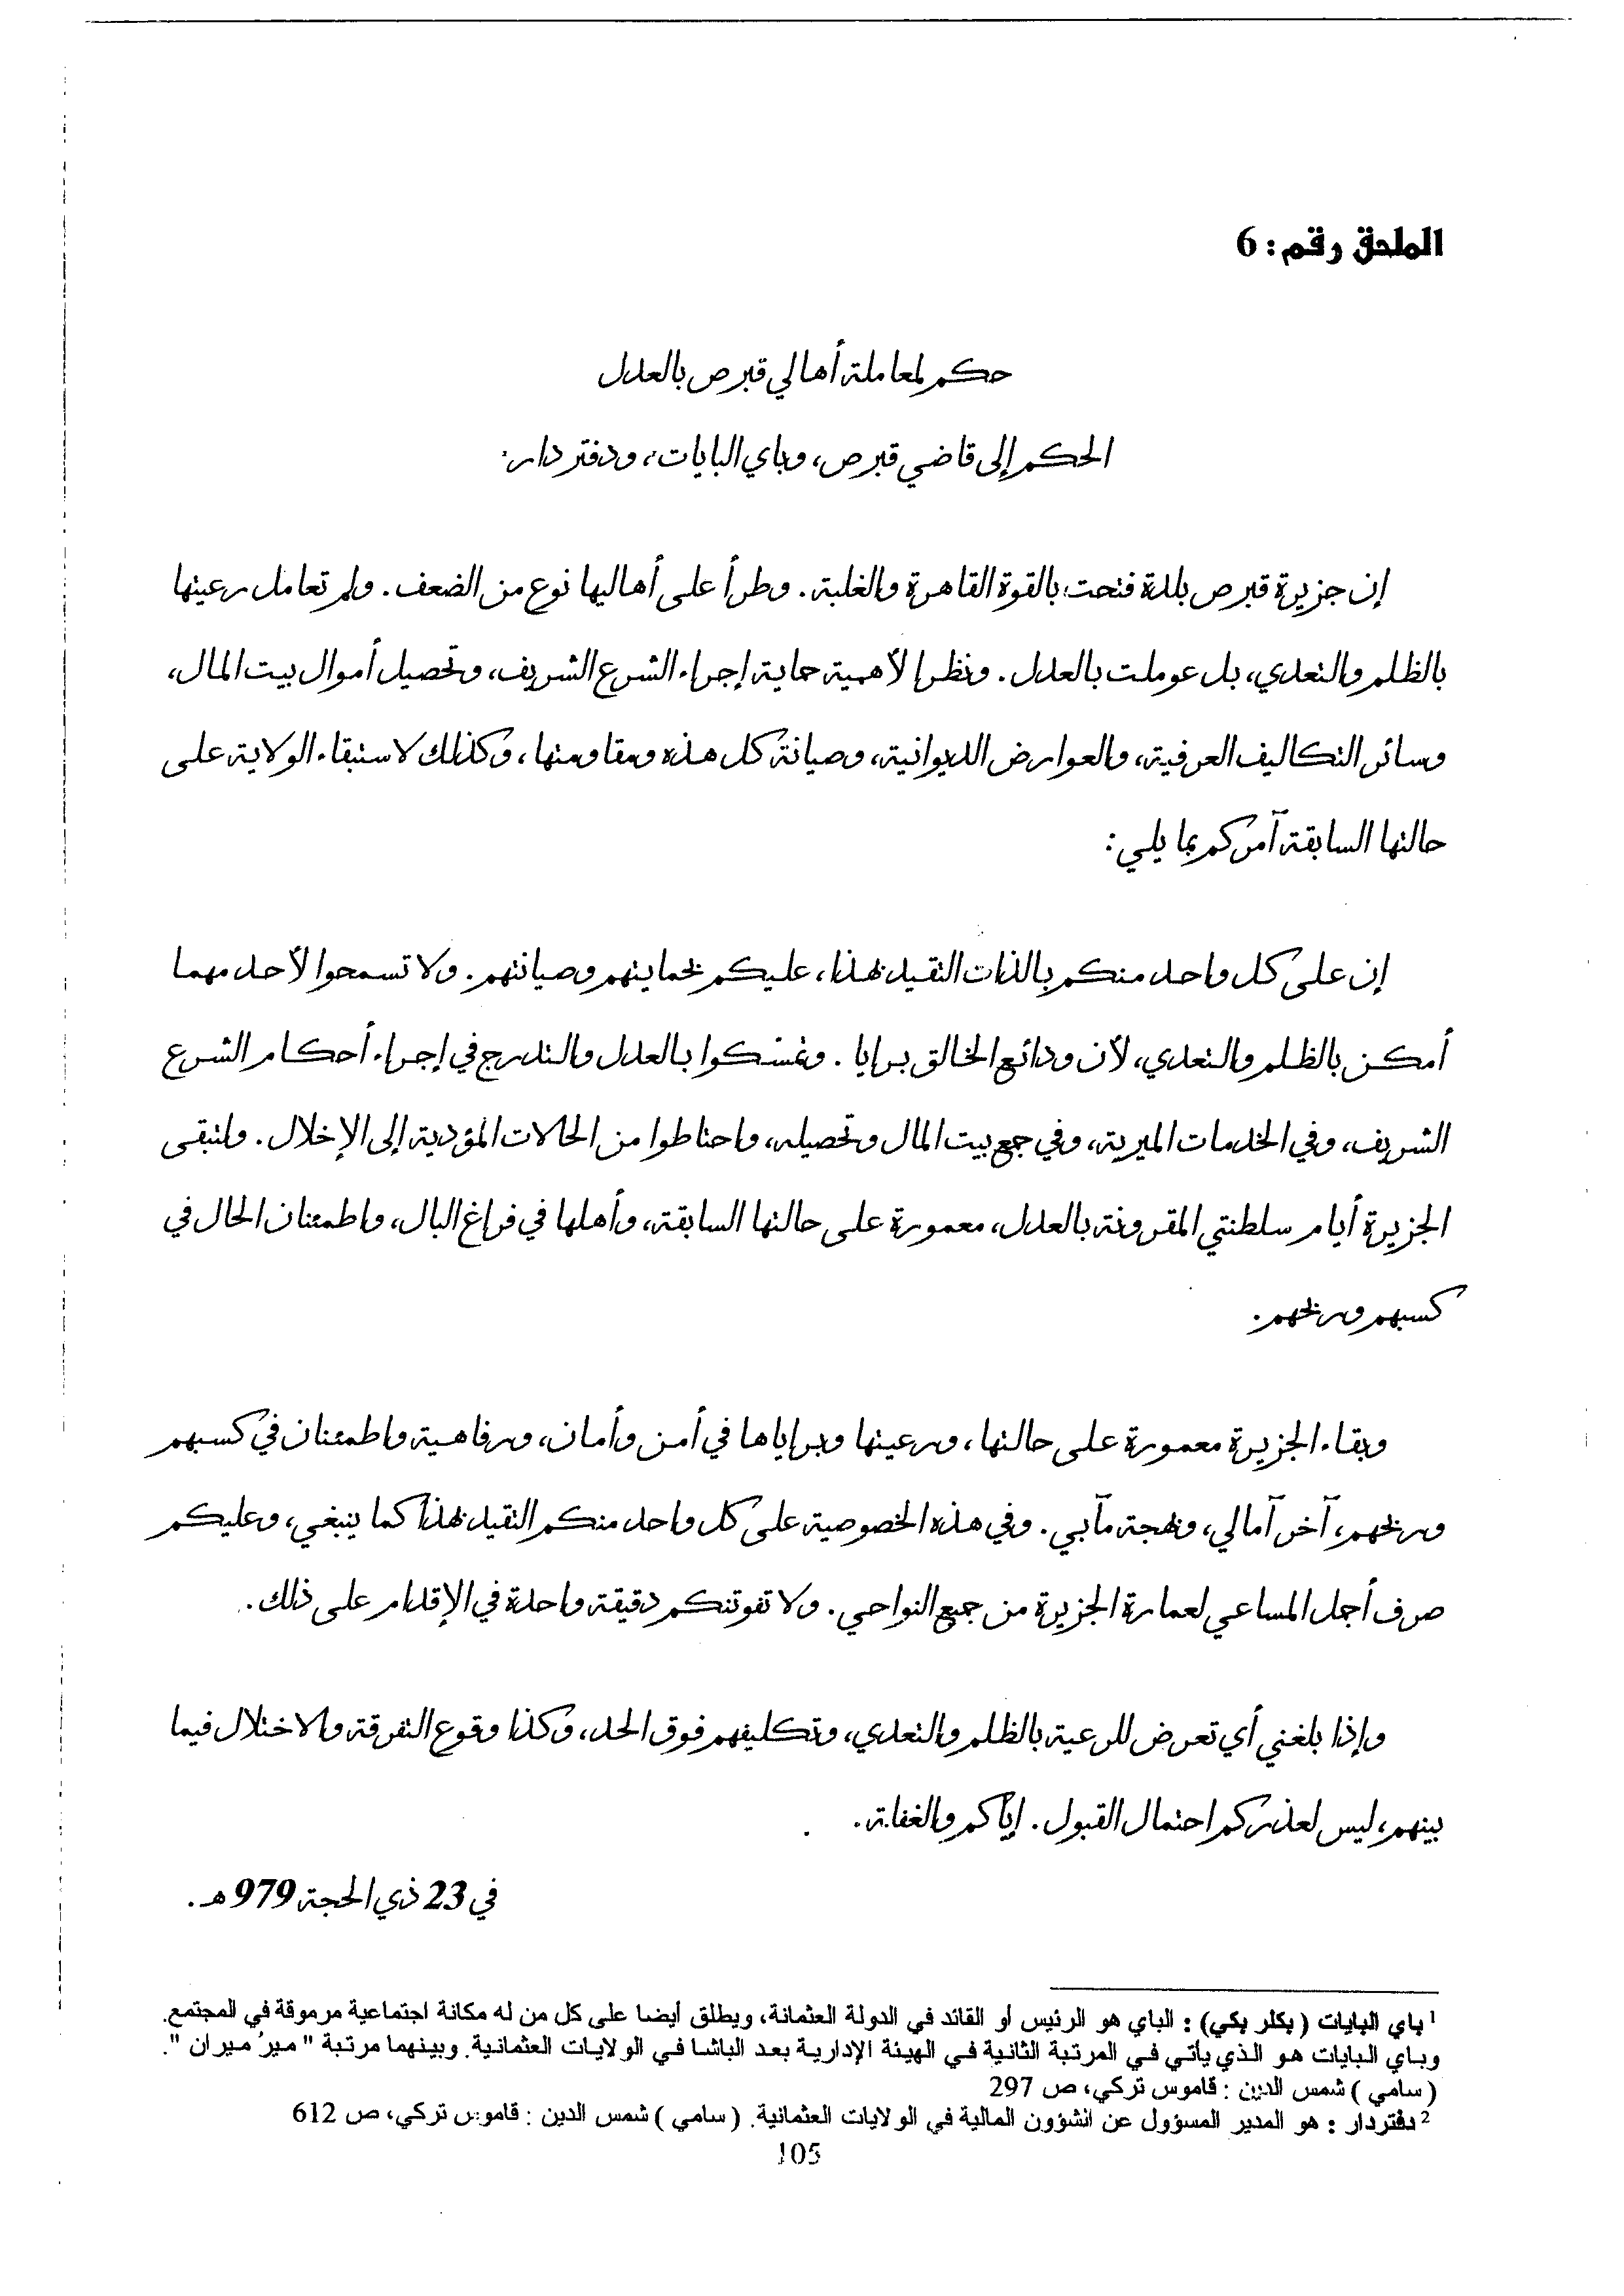 الملحق رقم : 6
حكم لمعاملة أهالي قبرص بالعدل
الحكم إلى قاضي قبرص، وباي البايات¹، ودفتر دار²
إن جزيرة قبرص بلدة فتحت بالقوة القاهرة والغلبة. وطرأ على أهاليها نوع من الضعف. ولم تعامل رعيتها
بالظلم والتعدي، بل عوملت بالعدل. ونظرا لأهمية حماية إجراء الشرع الشريف، وتحصيل أموال بيت المال،
وسائر التكاليف العرفية، والعوارض الديوانية، وصيانة كل هذه ومقاومتها، وكذلك لاستبقاء الولاية على
حالتها السابقة آمركم بما يلي :
إن على كل واحد منكم بالذات التقيد بهذا، عليكم بحمايتهم وصيانتهم. ولا تسمحوا لأحد مهما
أمكن بالظلم والتعدي، لأن ودائع الخالق برايا. وتمسّكوا بالعدل والتدرج في إجراء أحكام الشرع
الشريف، وفي الخدمات الميرية، وفي جمع بيت المال وتحصيله، واحتاطوا من الحالات المؤدية إلى الإخلال. ولتبقى
الجزيرة أيام سلطنتي المقرونة بالعدل، معمورة على حالتها السابقة، وأهلها في فراغ البال، واطمئنان الحال في
كسبهم وربحهم.
وبقاء الجزيرة معمورة على حالتها، ورعيتها وبراياها في أمن وأمان، ورفاهية واطمئنان في كسبهم
وربحهم، آخر آمالي، وبهجة مآبي. وفي هذه الخصوصية على كل واحد منكم التقيد بهذا كما ينبغي، وعليكم
صرف أجمل المساعي لعمارة الجزيرة من جميع النواحي. ولا تفوتنكم دقيقة واحدة في الإقدام على ذلك.
وإذا بلغني أي تعرض للرعية بالظلم والتعدي، وتكليفهم فوق الحد، وكذا وقوع التفرقة والاختلال فيما
بينهم، ليس لعذركم احتمال القبول. إيّاكم والغفلة.
في 23 ذي الحجة 979 هـ.
¹ باي البايات ( بكلر بكي) : الباي هو الرئيس أو القائد في الدولة العثمانة، ويطلق أيضا على كل من له مكانة اجتماعية مرموقة في المجتمع.
وباي البايات هو الذي يأتي في المرتبة الثانية في الهيئة الإدارية بعد الباشا في الولايات العثمانية. وبينهما مرتبة " ميرُ ميران ".
( سامي ) شمس الدين : قاموس تركي، ص 297
² دفتردار : هو المدير المسؤول عن الشؤون المالية في الولايات العثمانية. ( سامي ) شمس الدين : قاموس تركي، ص 612
105